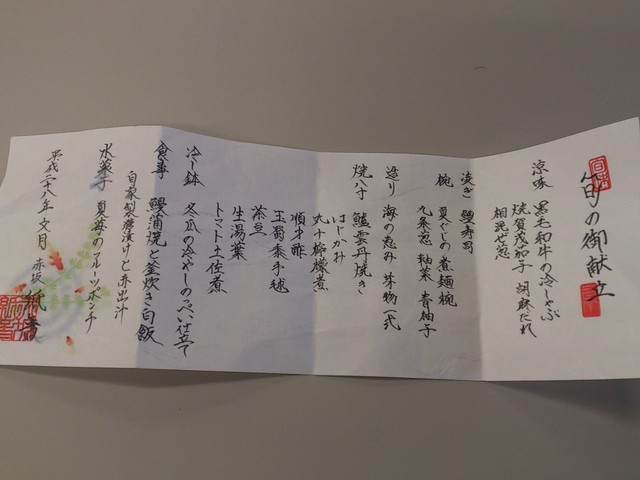 旬の御献立
涼味 黒毛和牛の冷しゃぶ
焼賀茂茄子 胡麻だれ
相混ぜ葱
凌ぎ 鰻寿司
椀 夏ぐじの煮麺椀
九条葱 軸菜 青柚子
造り 海の恵み 芽物一式
焼八寸 鱸雲丹焼き
はじかみ
丸十檸檬煮
順才酢
玉蜀黍手毬
茶豆
生湯葉
トマト土佐煮
冷し鉢 冬瓜の冷やしのっぺい仕立て
食事 鰻蒲焼と釜炊き白飯
自家製糠漬けと赤出汁
水菓子 夏苺のフルーツポンチ
平成二十八年 文月 赤坂